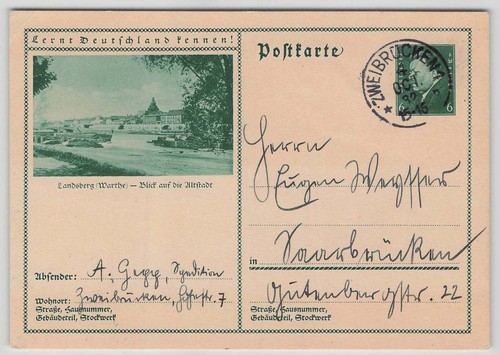 Lernt Deutschland kennen!
Landsberg (Warthe) — Blick auf die Altstadt
Absender: A. Gepp, Spedition
Wohnort: Zweibrücken, 7
Straße, Hausnummer,
Gebäudeteil, Stockwerk
Postkarte
ZWEIBRÜCKEN
OKT
6 6
Herrn
Eugen Weysser
in Saarbrücken
Gutenbergstr. 22
Straße, Hausnummer,
Gebäudeteil, Stockwerk